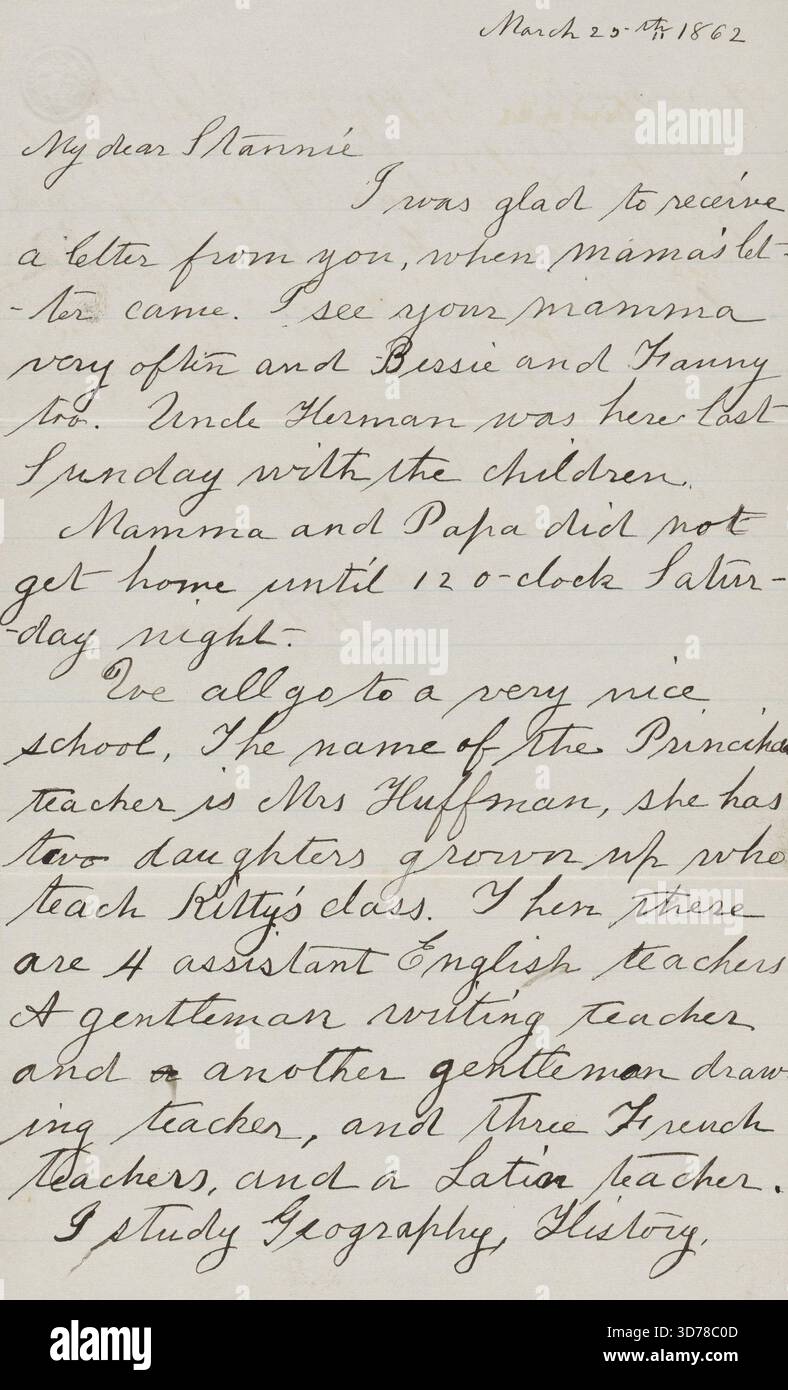 March 25th 1862
My dear Stannie
I was glad to receive
a letter from you, when mama's let-
-ter came. I see your mamma
very often and Bessie and Fanny
too. Uncle Herman was here last
Sunday with the children.
Mamma and Papa did not
get home until 12 o-clock Satur-
-day night.
We all go to a very nice
school, The name of the Principal
teacher is Mrs Huffman, she has
two daughters grown up who
teach Kitty's class. Then there
are 4 assistant English teachers
A gentleman writing teacher
and a another gentleman draw-
ing teacher, and three French
teachers, and a Latin teacher.
I study Geography, History,
alamy
alamy
alamy
Image ID: 3D78C0D
www.alamy.com